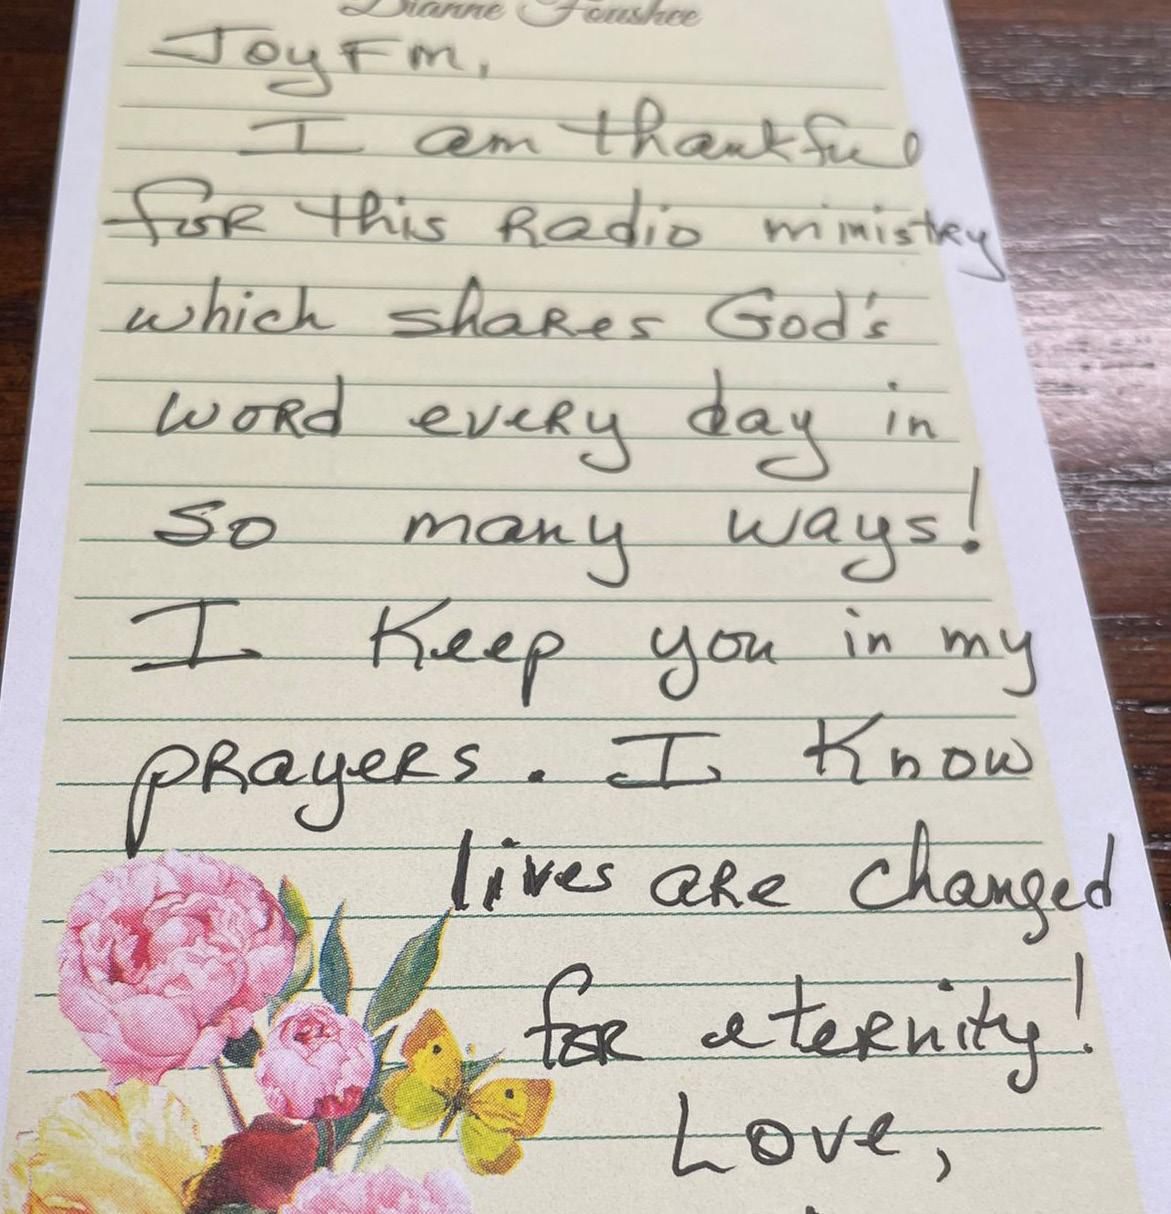 Dianne Foushee
Joy FM,
I am thankful
for this Radio ministry
which shares God's
word every day in
so many ways!
I Keep you in my
prayers. I Know
lives are changed
for eternity!
Love,